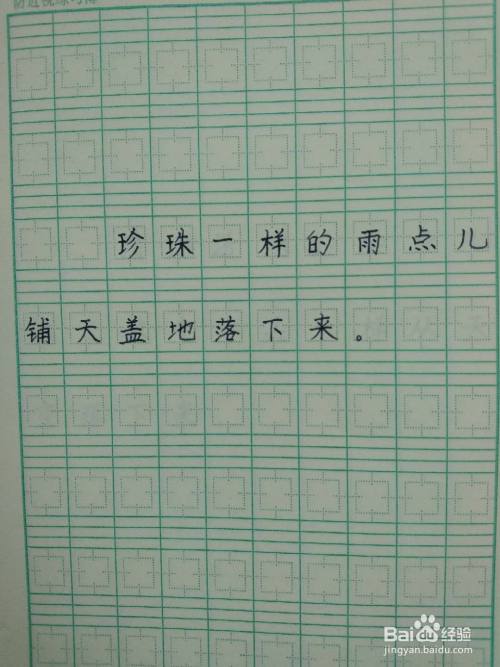 珍珠一样的雨点儿
铺天盖地落下来。
Baidu经验
jingyan.baidu.com